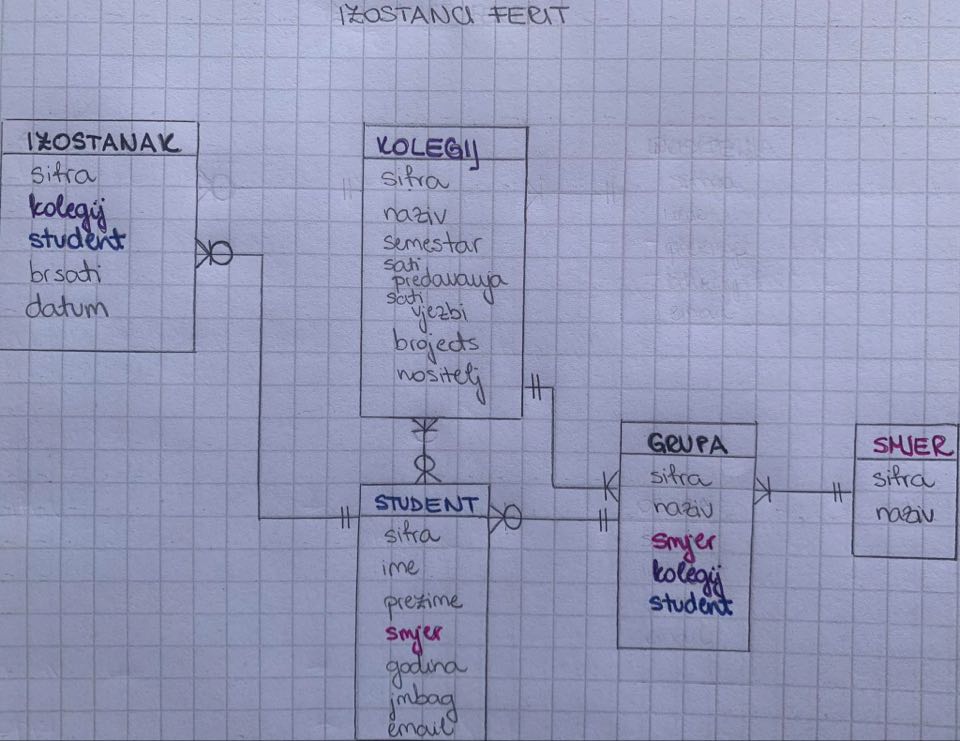 IZOSTANCI FERIT
IZOSTANAK
sifra
kolegij
student
brsati
datum
KOLEGIJ
sifra
naziv
semestar
sati
predavanja
sati
vjezbi
brojects
nositelj
STUDENT
sifra
ime
prezime
smjer
godina
jmbag
email
GRUPA
sifra
naziv
smjer
kolegij
student
SMJER
sifra
naziv